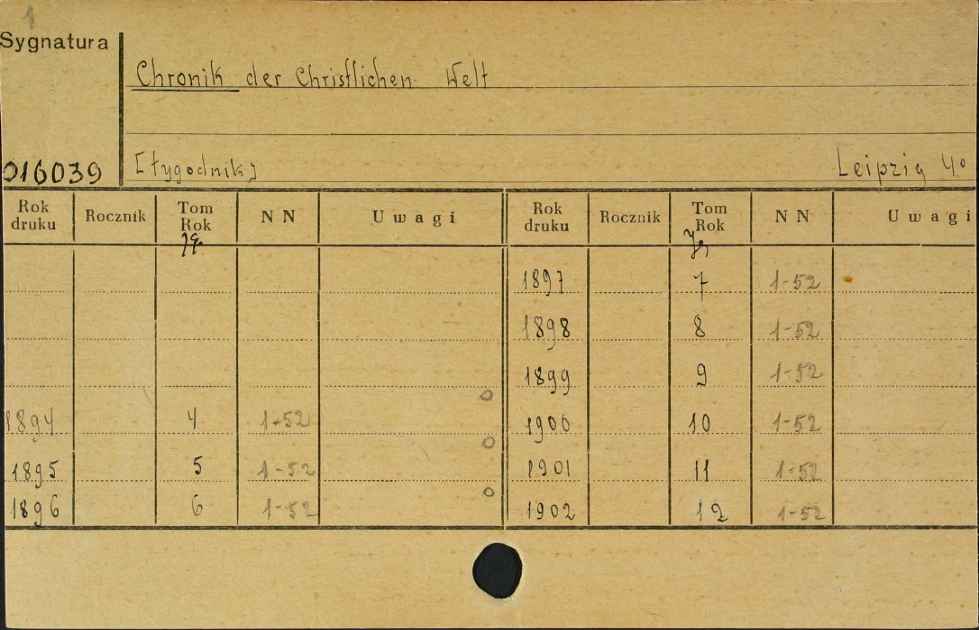 1
Sygnatura
Chronik der Christlichen Welt
016039 [tygodnik] Leipzig 4º
Rok druku Rocznik Tom Rok NN Uwagi Rok druku Rocznik Tom Rok NN Uwagi
Jg. Jg
1897 7 1-52
1898 8 1-52
1899 9 1-52
1894 4 1-52 1900 10 1-52
1895 5 1-52 1901 11 1-52
1896 6 1-52 1902 12 1-52